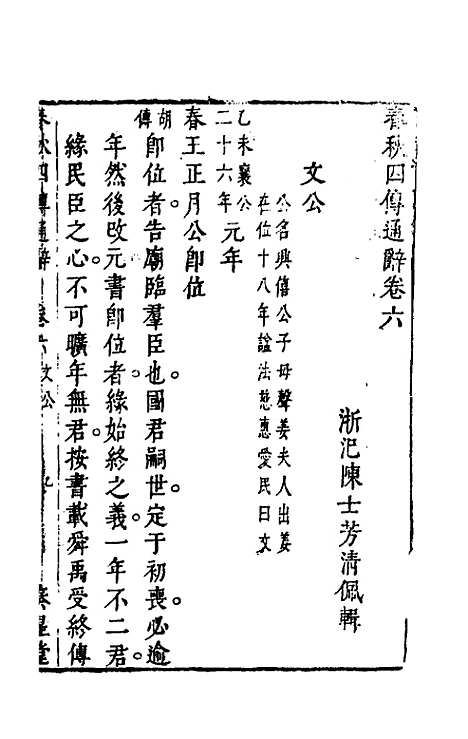 春秋四傳通辭卷六
浙汜陳士芳清佩輯
文公
公名興僖公子母聲姜夫人出姜
在位十八年諡法慈惠愛民曰文
乙未襄公
二十六年元年
春王正月公卽位
胡傳卽位者告廟臨羣臣也國君嗣世定于初喪必逾
年然後改元書卽位者緣始終之義一年不二君
緣民臣之心不可曠年無君按書載舜禹受終傳
春秋四傳通辭
卷六文公